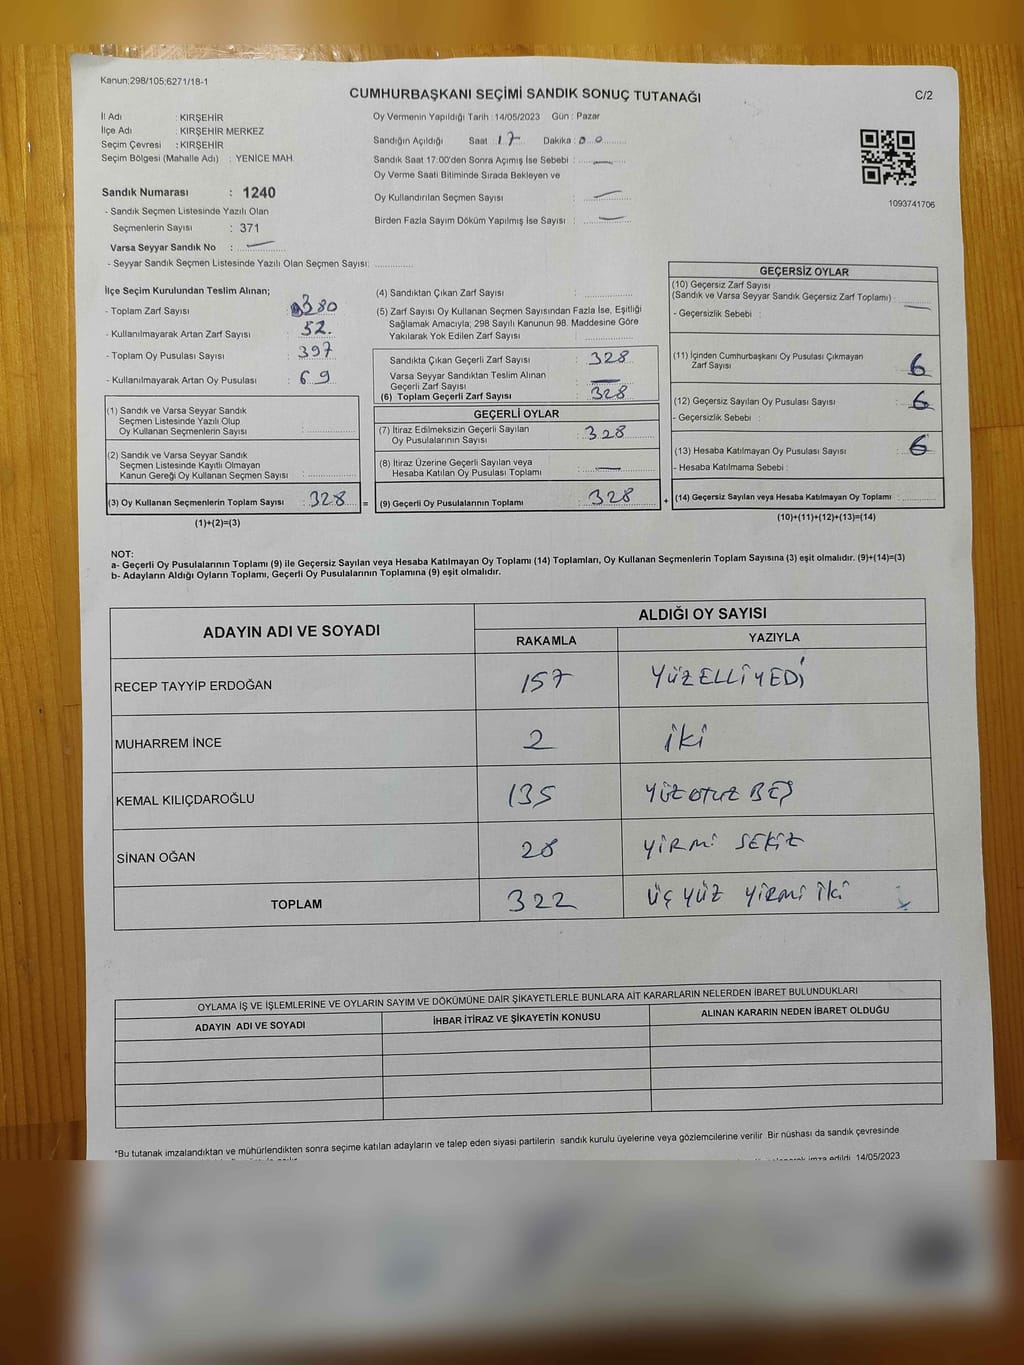 Kanun:298/105;6271/18-1
CUMHURBAŞKANI SEÇİMİ SANDIK SONUÇ TUTANAĞI
C/2
İl Adı : KIRŞEHİR
İlçe Adı : KIRŞEHİR MERKEZ
Seçim Çevresi : KIRŞEHİR
Seçim Bölgesi (Mahalle Adı) : YENİCE MAH.
Oy Vermenin Yapıldığı Tarih : 14/05/2023 Gün : Pazar
Sandığın Açıldığı Saat : 17 Dakika : 00
Sandık Saat 17:00'den Sonra Açımış İse Sebebi : —
Oy Verme Saati Bitiminde Sırada Bekleyen ve
Oy Kullandırılan Seçmen Sayısı : —
Birden Fazla Sayım Döküm Yapılmış İse Sayısı : —
1093741706
Sandık Numarası : 1240
- Sandık Seçmen Listesinde Yazılı Olan
Seçmenlerin Sayısı : 371
Varsa Seyyar Sandık No : —
- Seyyar Sandık Seçmen Listesinde Yazılı Olan Seçmen Sayısı:
İlçe Seçim Kurulundan Teslim Alınan;
- Toplam Zarf Sayısı : 380
- Kullanılmayarak Artan Zarf Sayısı : 52.
- Toplam Oy Pusulası Sayısı : 397
- Kullanılmayarak Artan Oy Pusulası : 69
(1) Sandık ve Varsa Seyyar Sandık
Seçmen Listesinde Yazılı Olup
Oy Kullanan Seçmenlerin Sayısı :
(2) Sandık ve Varsa Seyyar Sandık
Seçmen Listesinde Kayıtlı Olmayan
Kanun Gereği Oy Kullanan Seçmen Sayısı :
(3) Oy Kullanan Seçmenlerin Toplam Sayısı : 328 =
(1)+(2)=(3)
(4) Sandıktan Çıkan Zarf Sayısı :
(5) Zarf Sayısı Oy Kullanan Seçmen Sayısından Fazla İse, Eşitliği
Sağlamak Amacıyla; 298 Sayılı Kanunun 98. Maddesine Göre
Yakılarak Yok Edilen Zarf Sayısı :
Sandıkta Çıkan Geçerli Zarf Sayısı : 328
Varsa Seyyar Sandıktan Teslim Alınan
Geçerli Zarf Sayısı : —
(6) Toplam Geçerli Zarf Sayısı : 328
GEÇERLİ OYLAR
(7) İtiraz Edilmeksizin Geçerli Sayılan
Oy Pusulalarının Sayısı : 328
(8) İtiraz Üzerine Geçerli Sayılan veya
Hesaba Katılan Oy Pusulası Toplamı : —
(9) Geçerli Oy Pusulalarının Toplamı : 328 +
GEÇERSİZ OYLAR
(10) Geçersiz Zarf Sayısı
(Sandık ve Varsa Seyyar Sandık Geçersiz Zarf Toplamı) :
- Geçersizlik Sebebi : —
(11) İçinden Cumhurbaşkanı Oy Pusulası Çıkmayan
Zarf Sayısı : 6
(12) Geçersiz Sayılan Oy Pusulası Sayısı : 6
- Geçersizlik Sebebi :
(13) Hesaba Katılmayan Oy Pusulası Sayısı : 6
- Hesaba Katılmama Sebebi :
(14) Geçersiz Sayılan veya Hesaba Katılmayan Oy Toplamı :
(10)+(11)+(12)+(13)=(14)
NOT:
a- Geçerli Oy Pusulalarının Toplamı (9) ile Geçersiz Sayılan veya Hesaba Katılmayan Oy Toplamı (14) Toplamları, Oy Kullanan Seçmenlerin Toplam Sayısına (3) eşit olmalıdır. (9)+(14)=(3)
b- Adayların Aldığı Oyların Toplamı, Geçerli Oy Pusulalarının Toplamına (9) eşit olmalıdır.
ADAYIN ADI VE SOYADI
ALDIĞI OY SAYISI
RAKAMLA YAZIYLA
RECEP TAYYİP ERDOĞAN 157 YÜZELLİYEDİ
MUHARREM İNCE 2 İKİ
KEMAL KILIÇDAROĞLU 135 YÜZOTUZ BEŞ
SİNAN OĞAN 28 YİRMİ SEKİZ
TOPLAM 322 ÜÇ YÜZ YİRMİ İKİ
OYLAMA İŞ VE İŞLEMLERİNE VE OYLARIN SAYIM VE DÖKÜMÜNE DAİR ŞİKAYETLERLE BUNLARA AİT KARARLARIN NELERDEN İBARET BULUNDUKLARI
ADAYIN ADI VE SOYADI İHBAR İTİRAZ VE ŞİKAYETİN KONUSU ALINAN KARARIN NEDEN İBARET OLDUĞU
*Bu tutanak imzalandıktan ve mühürlendikten sonra seçime katılan adayların ve talep eden siyasi partilerin sandık kurulu üyelerine veya gözlemcilerine verilir Bir nüshası da sandık çevresinde
imza edildi 14/05/2023